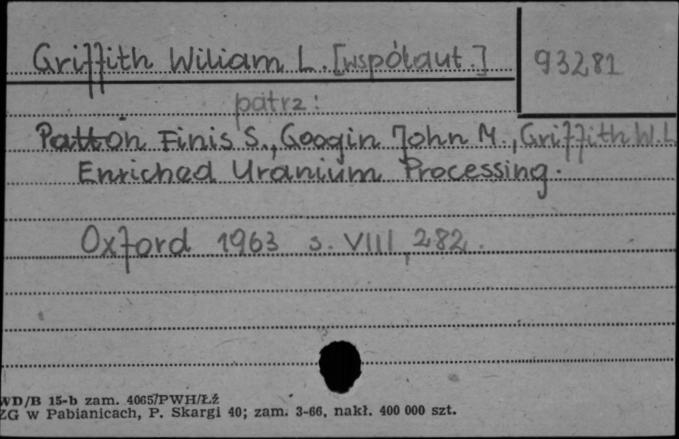 Griffith Wiliam L. [współaut.]
93281
patrz:
Patton Finis S., Googin John M., Griffith W.L
Enriched Uranium Processing.
Oxford 1963 s. VIII, 282.
WD/B 15-b zam. 4065/PWH/Łź
ZG w Pabianicach, P. Skargi 40; zam. 3-66, nakł. 400 000 szt.